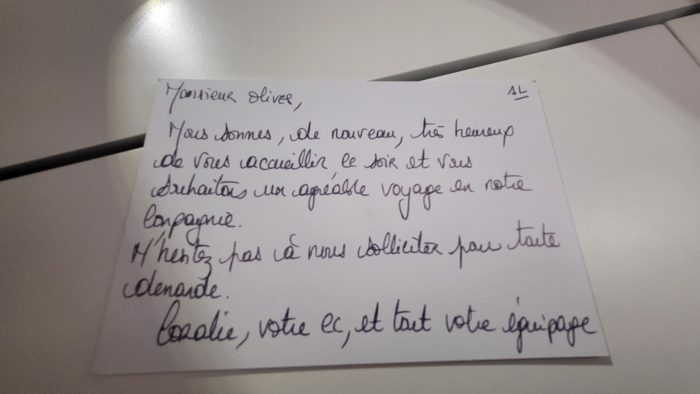 Monsieur Oliver,
1L
Nous sommes, de nouveau, très heureux
de vous accueillir ce soir et vous
souhaitons un agréable voyage en notre
compagnie.
N'hésitez pas à nous solliciter pour toute
demande.
Coralie, votre cc, et tout votre équipage